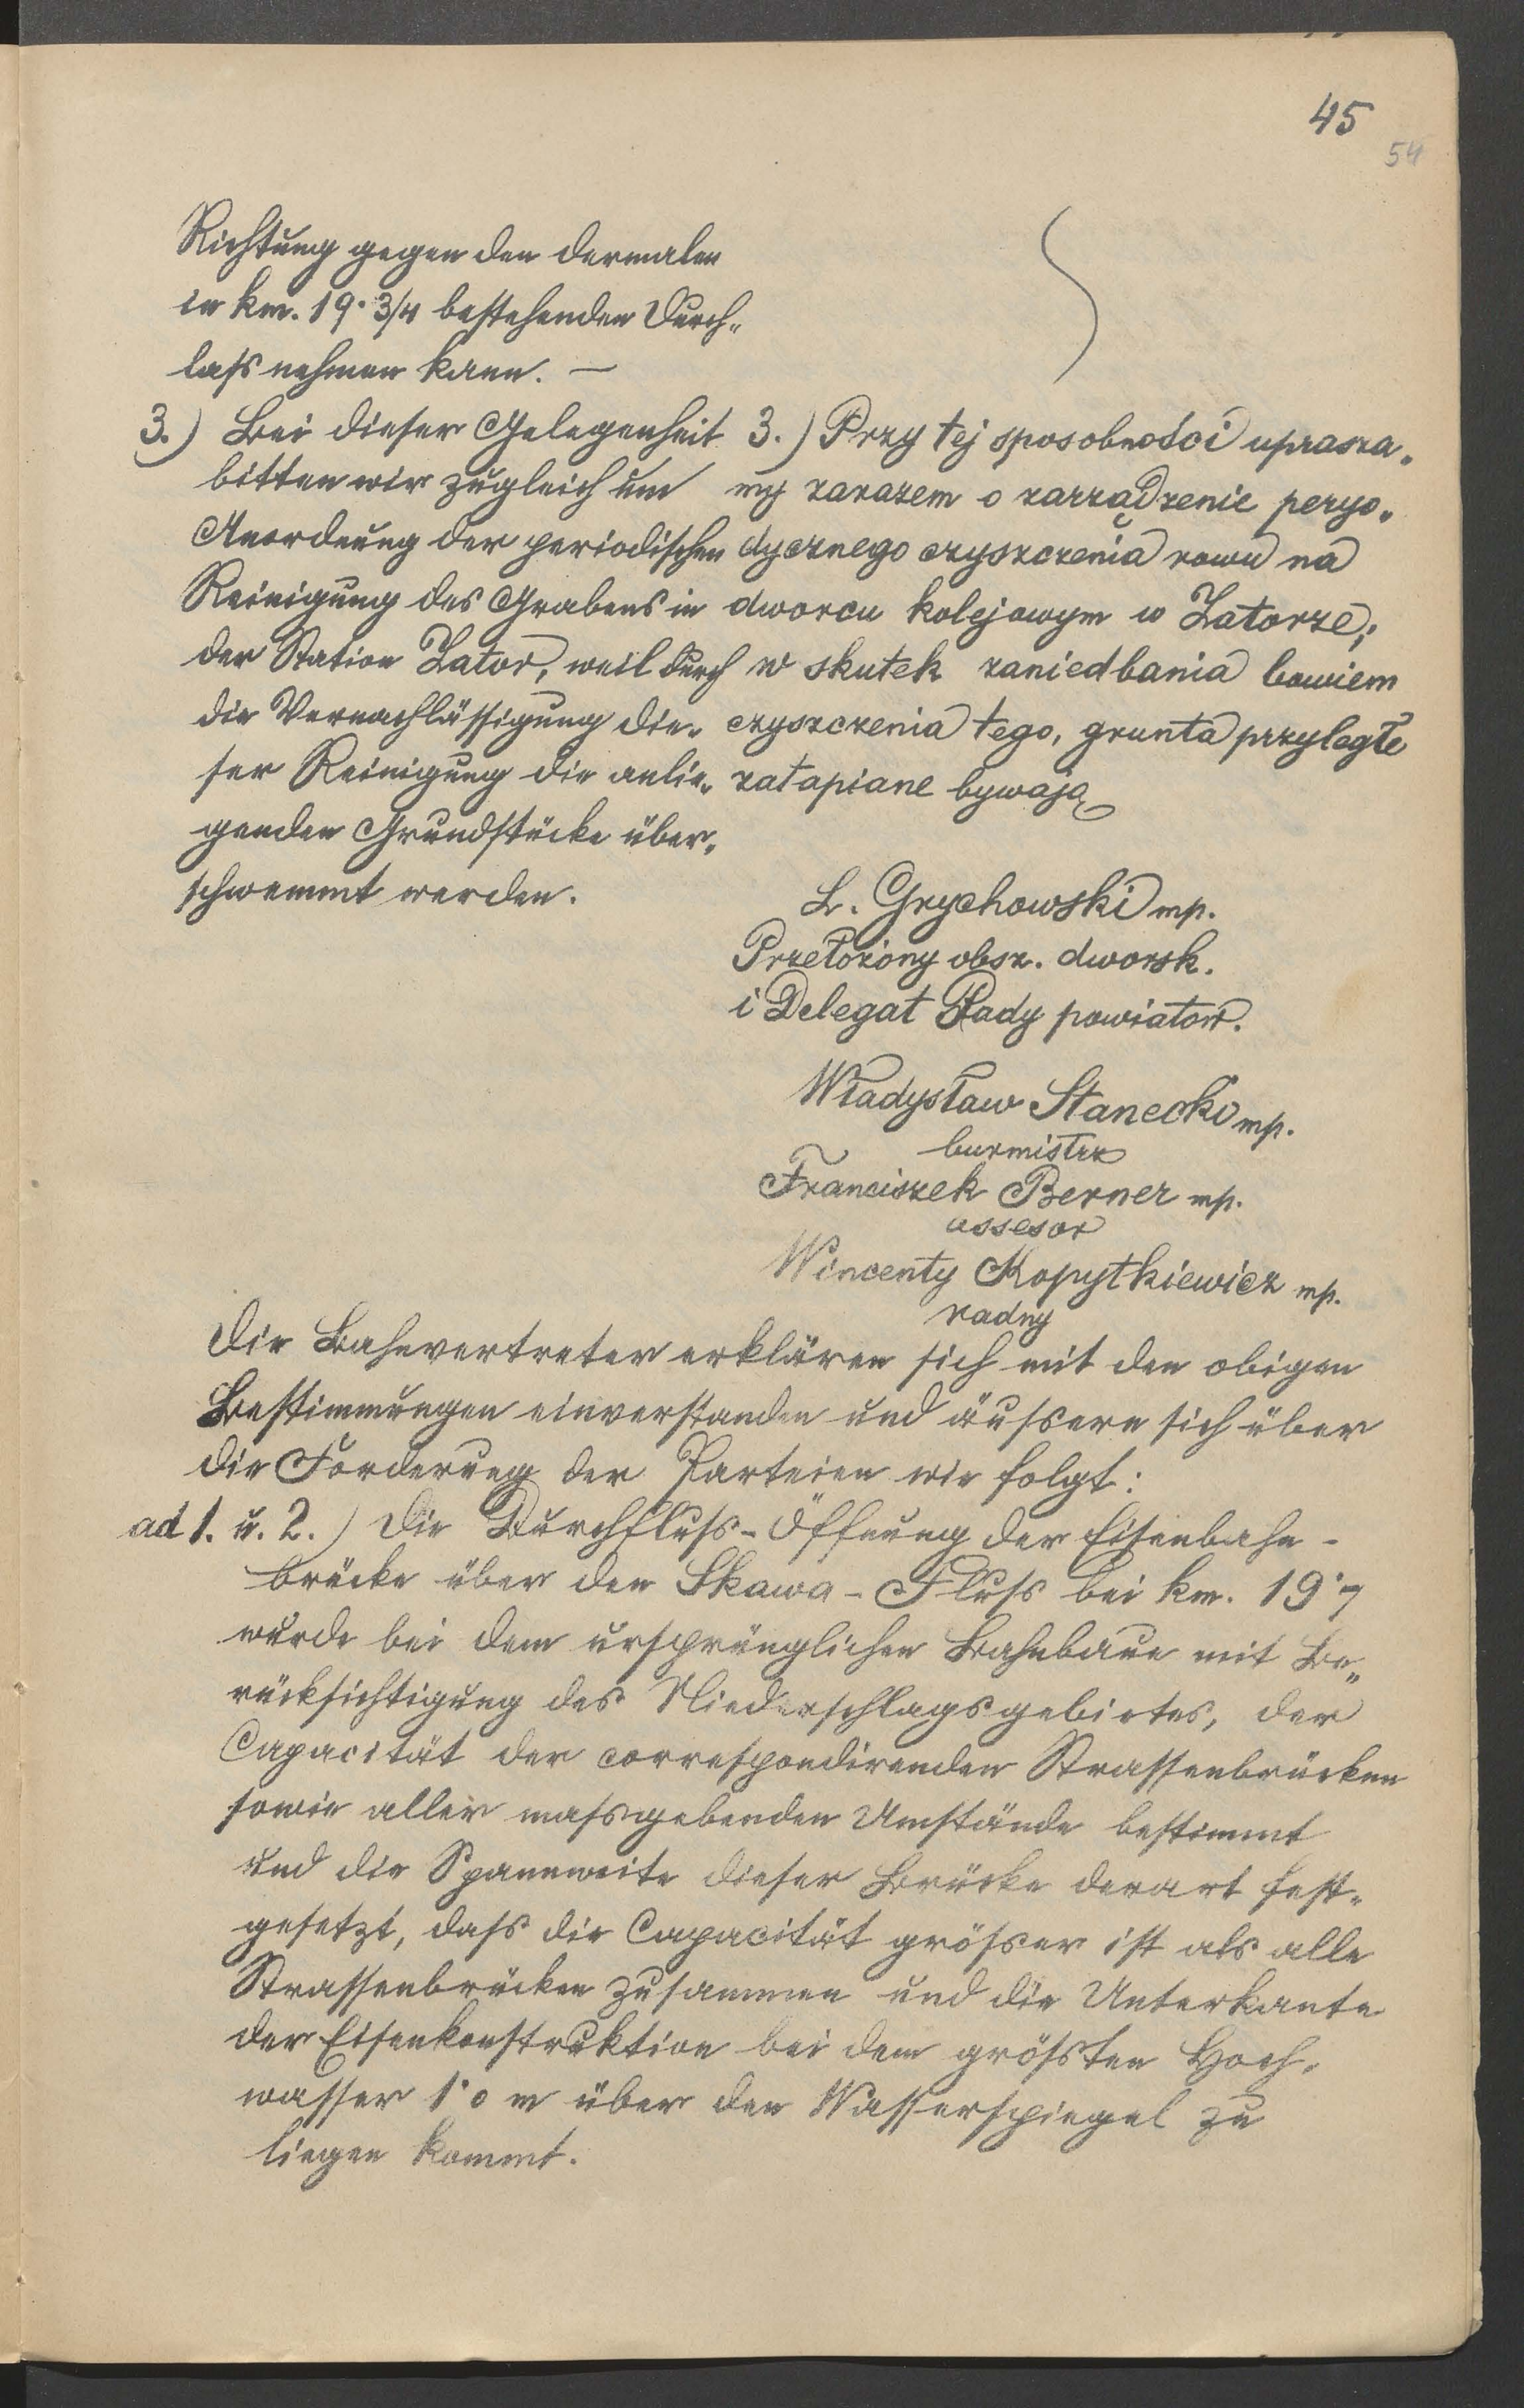 45
54
Richtung gegen den dermalen
in km. 19·3/4 bestehenden Durch„
laß nehmen kann. —
3.) Bei dieser Gelegenheit
bitten wir zugleich um
Anordnung der periodischen
Reinigung des Grabens in
der Station Zator, weil durch
die Vernachlässigung die„
ser Reinigung die anlie„
genden Grundstücke über„
schwemmt werden.
3.) Przy tej sposobności uprasza„
my zarazem o zarządzenie peryo„
dycznego czyszczenia rowu na
dworcu kolejowym w Zatorze;
w skutek zaniedbania bowiem
czyszczenia tego, grunta przyległe
zatapiane bywają
L. Grychowski mp.
Przełożony obsz. dworsk.
i Delegat Rady powiatow.
Władysław Stanecki mp.
burmistrz
Franciszek Berner mp.
assesor
Wincenty Kopytkiewicz mp.
radny
Die Bahnvertreter erklären sich mit den obigen
Bestimmungen einverstanden und äußern sich über
die Forderung der Parteien wie folgt:
ad 1. u. 2.) Die Durchfluß-Öffnung der Eisenbahn-
brücke über den Skawa-Fluß bei km. 19·7
wurde bei dem ursprünglichen Bahnbaue mit Be„
rücksichtigung des Niederschlagsgebietes, der
Capacität der correspondirenden Strassenbrücken
sowie aller maßgebenden Umstände bestimmt
und die Spannweite dieser Brücke derart fest„
gesetzt, daß die Capacität größer ist als alle
Strassenbrücken zusammen und die Unterkante
der Eisenkonstruktion bei dem größten Hoch„
wasser 1·0 m über den Wasserspiegel zu
liegen kommt.